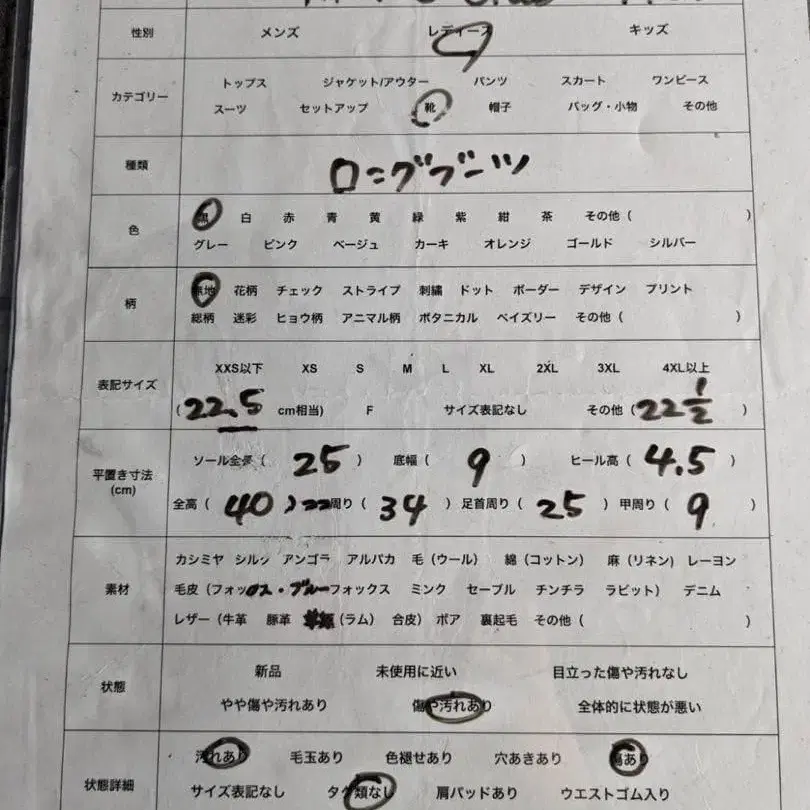 性別 メンズ レディース キッズ
カテゴリー
トップス ジャケット/アウター パンツ スカート ワンピース
スーツ セットアップ 靴 帽子 バッグ・小物 その他
種類 ロングブーツ
色
黒 白 赤 青 黄 緑 紫 紺 茶 その他 ( )
グレー ピンク ベージュ カーキ オレンジ ゴールド シルバー
柄
無地 花柄 チェック ストライプ 刺繍 ドット ボーダー デザイン プリント
総柄 迷彩 ヒョウ柄 アニマル柄 ボタニカル ペイズリー その他 ( )
表記サイズ
XXS以下 XS S M L XL 2XL 3XL 4XL以上
(22.5 cm相当) F サイズ表記なし その他 (22 1/2 )
平置き寸法
(cm)
ソール全長 ( 25 ) 底幅 ( 9 ) ヒール高 ( 4.5 )
全高 ( 40 ) 周り ( 34 ) 足首周り ( 25 ) 甲周り ( 9 )
素材
カシミヤ シルク アンゴラ アルパカ 毛 (ウール) 綿 (コットン) 麻 (リネン) レーヨン
毛皮 (フォックス・ブルーフォックス ミンク セーブル チンチラ ラビット) デニム
レザー (牛革 豚革 (ラム) 合皮) ボア 裏起毛 その他 ( )
状態
新品 未使用に近い 目立った傷や汚れなし
やや傷や汚れあり 傷や汚れあり 全体的に状態が悪い
状態詳細
汚れあり 毛玉あり 色褪せあり 穴あきあり 傷あり
サイズ表記なし タグ類なし 肩パッドあり ウエストゴム入り